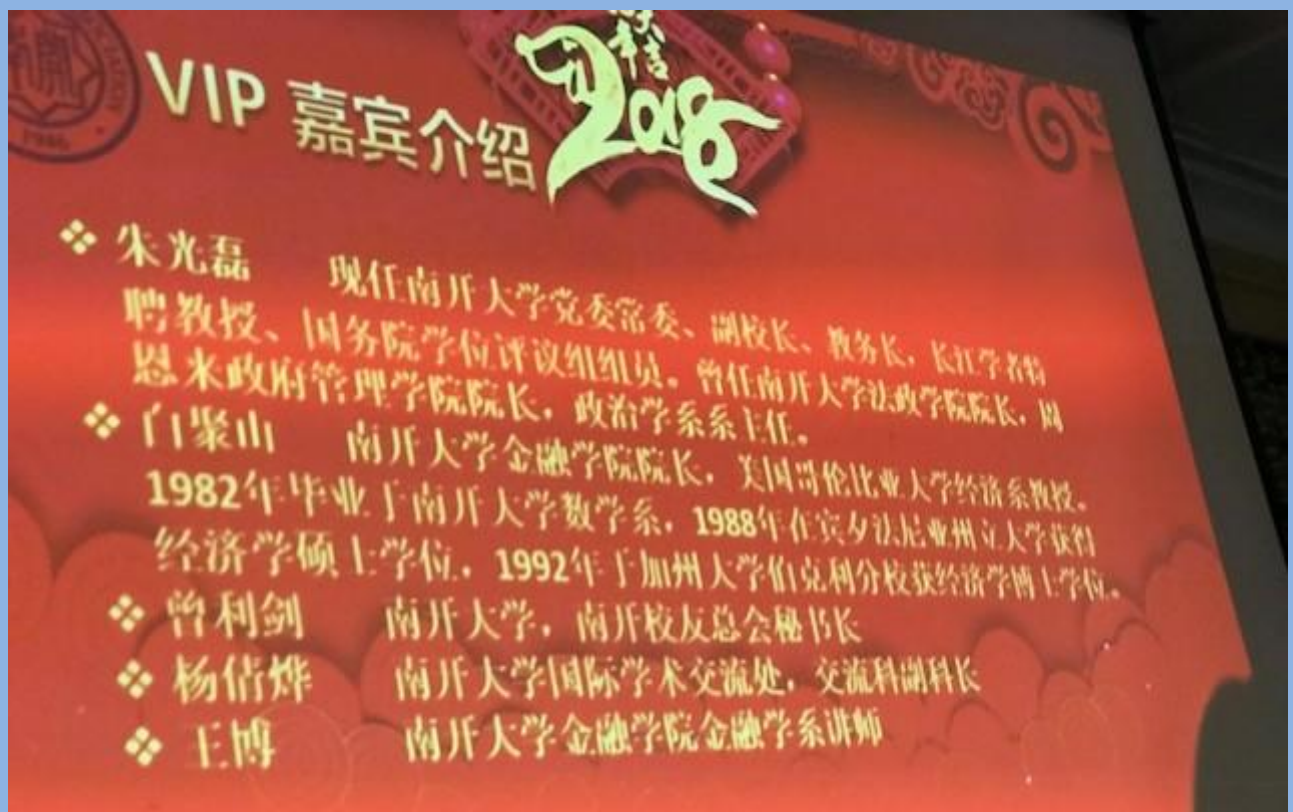 VIP 嘉宾介绍
2018
1946
❖ 朱光磊 现任南开大学党委常委、副校长、教务长，长江学者特
聘教授、国务院学位评议组组员。曾任南开大学法政学院院长，周
恩来政府管理学院院长，政治学系系主任。
❖ 门聚山 南开大学金融学院院长，美国哥伦比亚大学经济系教授。
1982年毕业于南开大学数学系，1988年在宾夕法尼亚州立大学获得
经济学硕士学位，1992年于加州大学伯克利分校获经济学博士学位。
❖ 曾利剑 南开大学，南开校友总会秘书长
❖ 杨倩烨 南开大学国际学术交流处，交流科副科长
❖ 王博 南开大学金融学院金融学系讲师